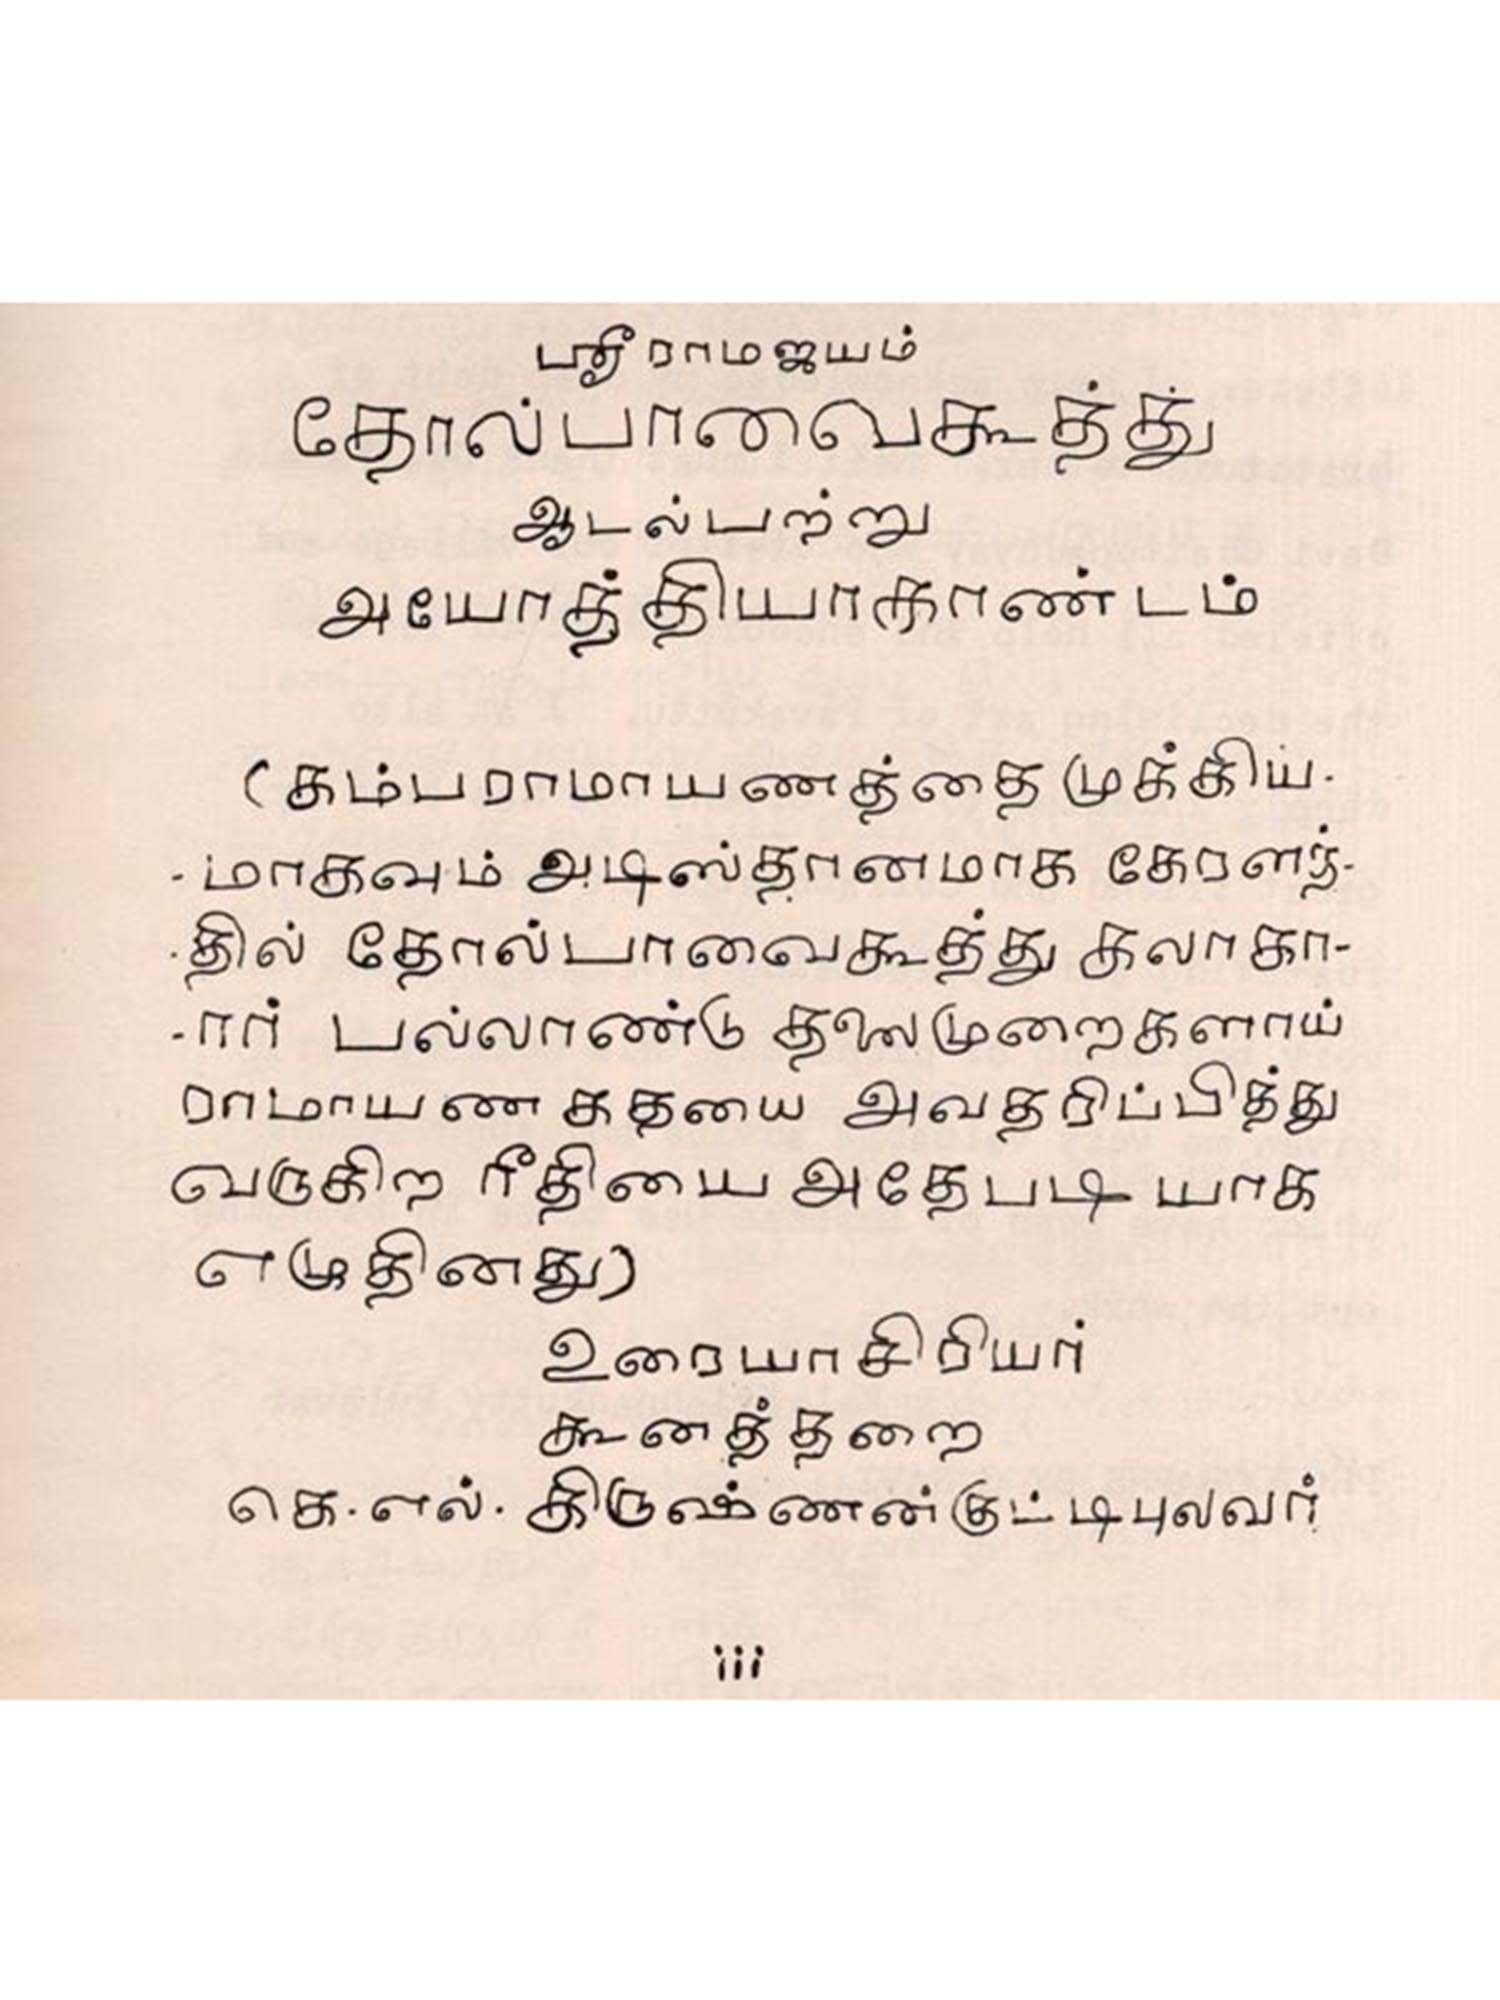 ஸ்ரீ ராமஜயம்
தோல்பாவைகூத்து
ஆடல்பற்று
அயோத்தியாகாண்டம்
(கம்பராமாயணத்தை முக்கிய-
-மாகவும் அடிஸ்தானமாக கேரளத்-
-தில் தோல்பாவைகூத்து கலாகா-
-ரர் பல்லாண்டு தலைமுறைகளாய்
ராமாயண கதயை அவதரிப்பித்து
வருகிற ரீதியை அதேபடி யாக
எழுதினது)
உரையாசிரியர்
கூனத்தறை
கெ.எல். கிருஷ்ணன்குட்டிபுலவர்
iii